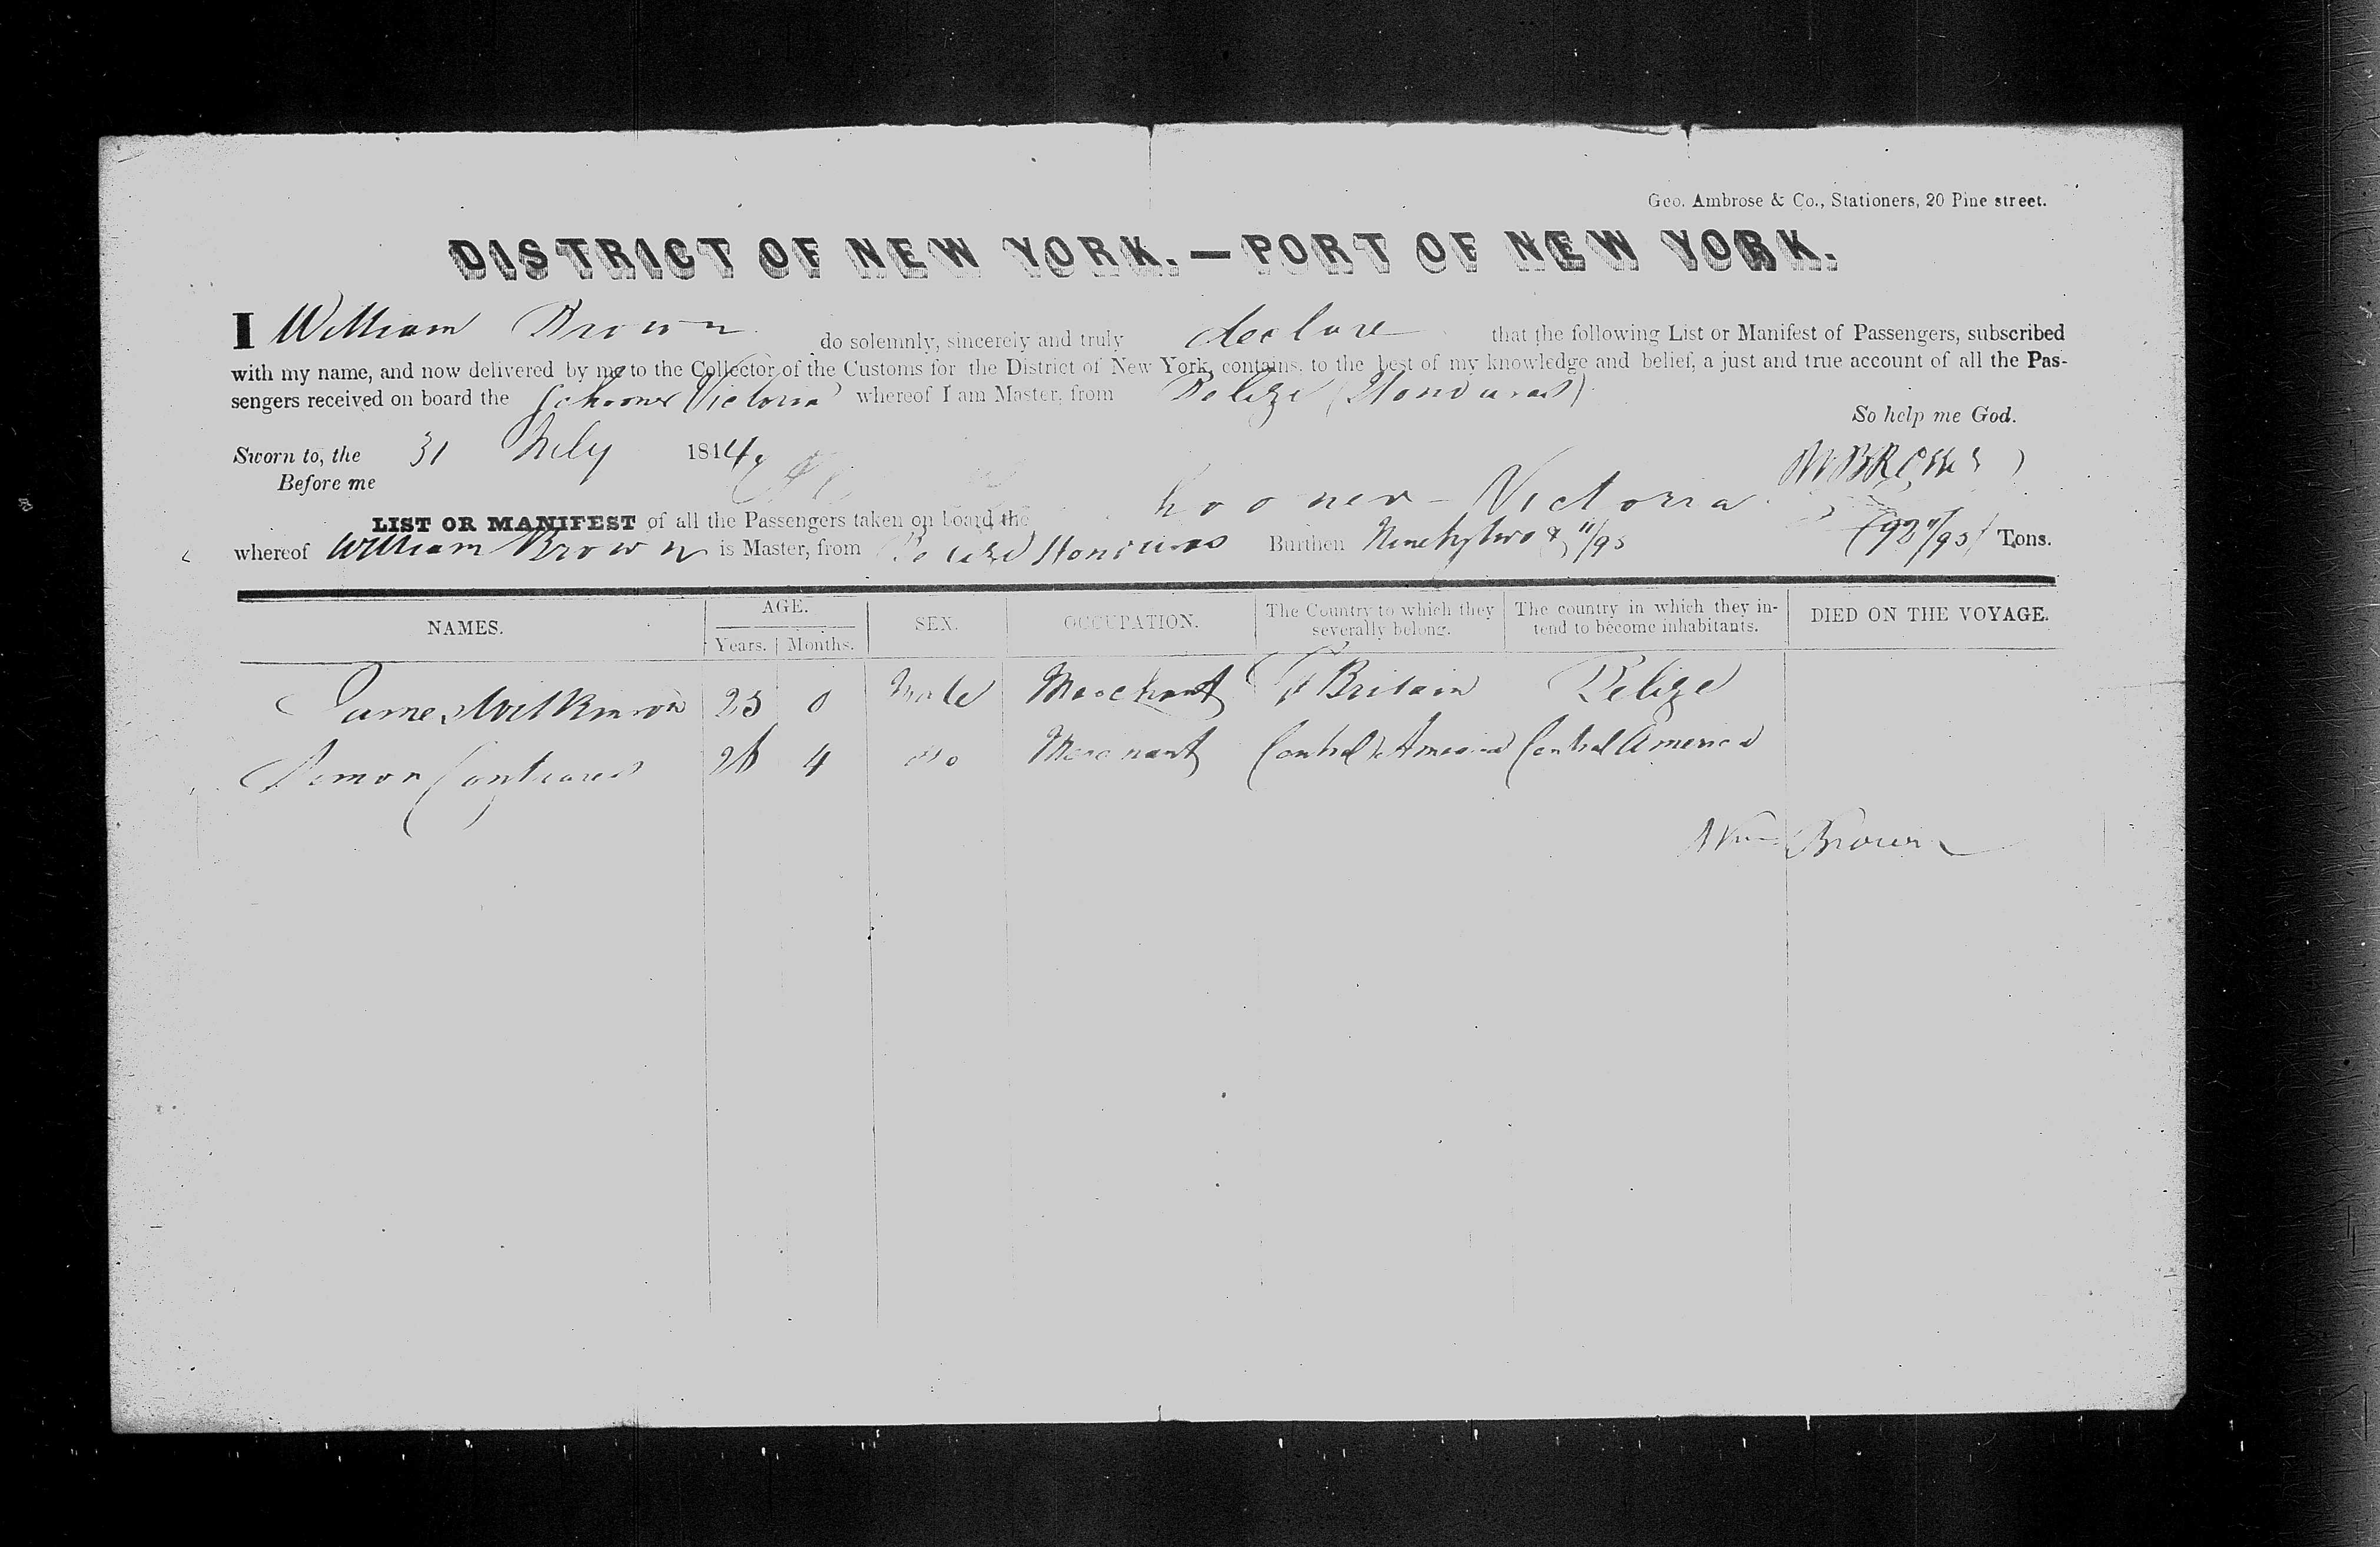 Geo. Ambrose & Co., Stationers, 20 Pine street.
DISTRICT OF NEW YORK.—PORT OF NEW YORK.
I William Brown do solemnly, sincerely and truly declare that the following List or Manifest of Passengers, subscribed
with my name, and now delivered by me to the Collector of the Customs for the District of New York, contains, to the best of my knowledge and belief, a just and true account of all the Pas-
sengers received on board the Schooner Victoria whereof I am Master, from Belize (Honduras)
So help me God.
Sworn to, the 31 July 1844
Before me
LIST OR MANIFEST of all the Passengers taken on board the hooner Victoria
whereof William Brown is Master, from Belize Honduras Burthen Ninety two & 11/95 (92 11/95) Tons.
NAMES. AGE. SEX. OCCUPATION. The Country to which they severally belong. The country in which they in-tend to become inhabitants. DIED ON THE VOYAGE.
Years. Months.
James Wilkinson 25 0 Male Merchant Gt Britain Belize
Simon Contreras 26 4 Do Merchant Central America Central America
Wm Brown